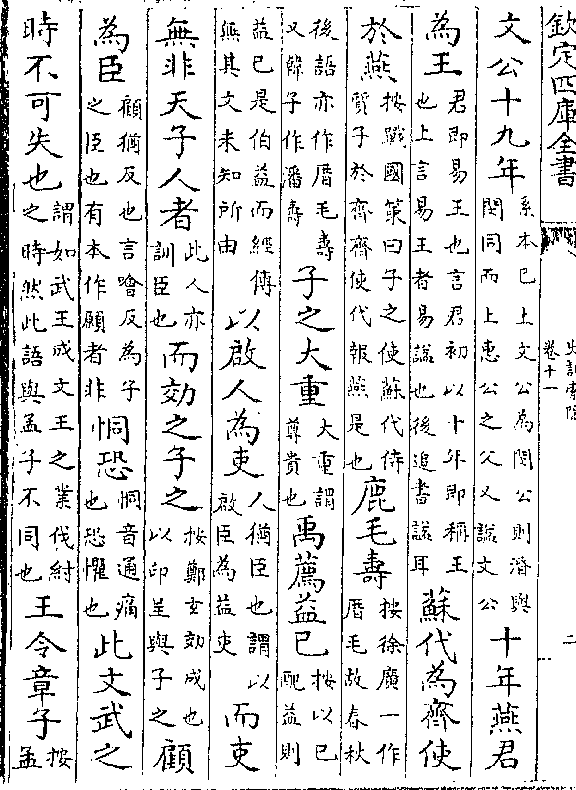 欽定四庫全書
史記索隱
卷十一
二
文公十九年系本已上文公為閔公則湣與閔同而上惠公之父又諡文公十年燕君
為王君即易王也言君初以十外即稱王也上言易王者易諡也後追書諡耳蘇代為齊使
於燕按戰國策曰子之使蘇代侍質子於齊齊使代報燕是也鹿毛壽按徐廣一作厝毛故春秋
後語亦作厝毛壽又韓子作潘壽子之大重大重謂尊貴也禹薦益已按以已配益則
益已是伯益而經傳無其文未知所由以啟人為吏人猶臣也謂以啟臣為益吏而吏
無非天子人者此人亦訓臣也而効之子之按鄭玄効成也以印呈與子之顧
為臣顧猶反也言噲反為子之臣也有本作願者非恫恐恫音通痛也恐懼也此文武之
時不可失也謂如武王成文王之業伐紂之時然此語與孟子不同也王令章子按孟